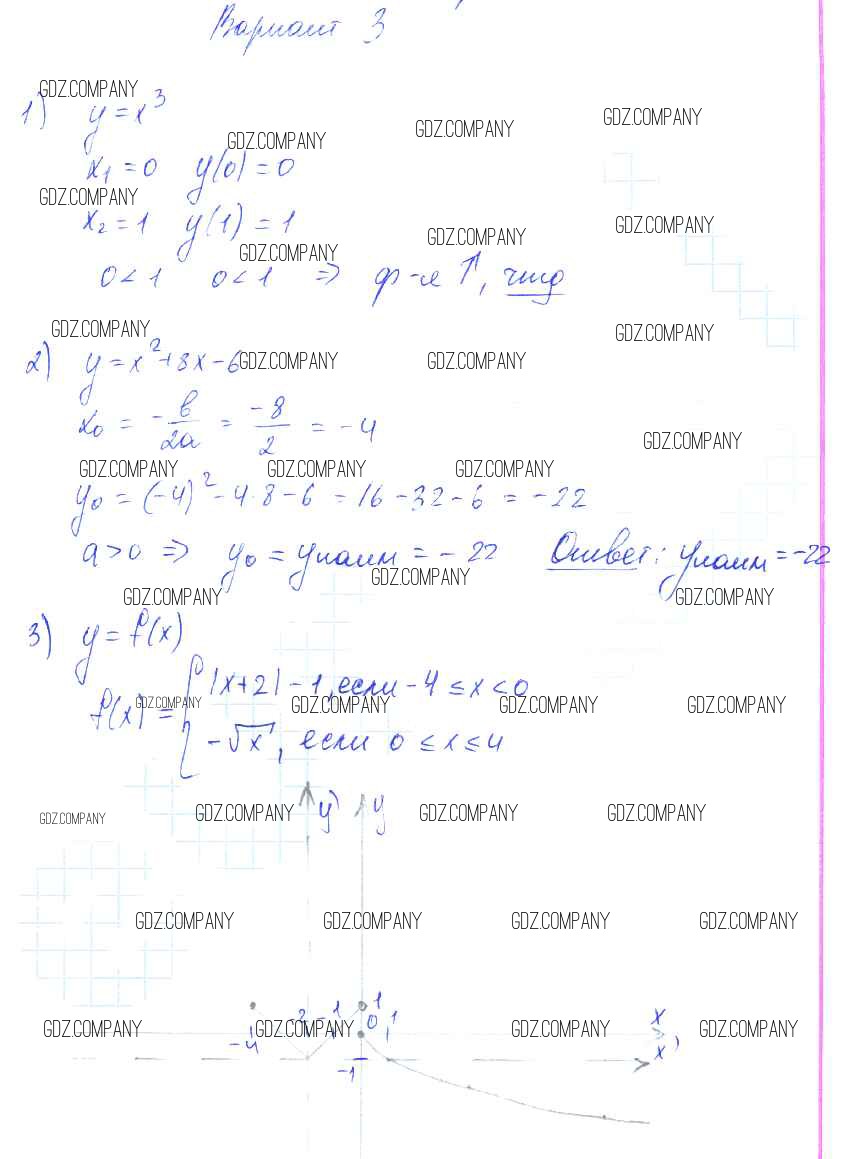 Вариант 3
GDZ.COMPANY
1) y = x³
GDZ.COMPANY GDZ.COMPANY GDZ.COMPANY
x₁ = 0 y(0) = 0
GDZ.COMPANY
x₂ = 1 y(1) = 1
GDZ.COMPANY GDZ.COMPANY GDZ.COMPANY
0 < 1 0 < 1 ⇒ ф-я ↑, чтд
GDZ.COMPANY GDZ.COMPANY
2) y = x² + 8x - 6
GDZ.COMPANY GDZ.COMPANY
x₀ = -b/2a = -8/2 = -4
GDZ.COMPANY
GDZ.COMPANY GDZ.COMPANY GDZ.COMPANY
y₀ = (-4)² - 4·8 - 6 = 16 - 32 - 6 = -22
a > 0 ⇒ y₀ = yнаим = -22 Ответ: yнаим = -22
GDZ.COMPANY
GDZ.COMPANY GDZ.COMPANY
3) y = f(x)
f(x) = { |x+2| - 1, если -4 ≤ x < 0
GDZ.COMPANY GDZ.COMPANY GDZ.COMPANY GDZ.COMPANY
-√x, если 0 ≤ x ≤ 4
y' y
GDZ.COMPANY GDZ.COMPANY GDZ.COMPANY GDZ.COMPANY
GDZ.COMPANY GDZ.COMPANY GDZ.COMPANY GDZ.COMPANY
-2 -1 1
0 1 x
GDZ.COMPANY GDZ.COMPANY GDZ.COMPANY GDZ.COMPANY
-4 x'
-1